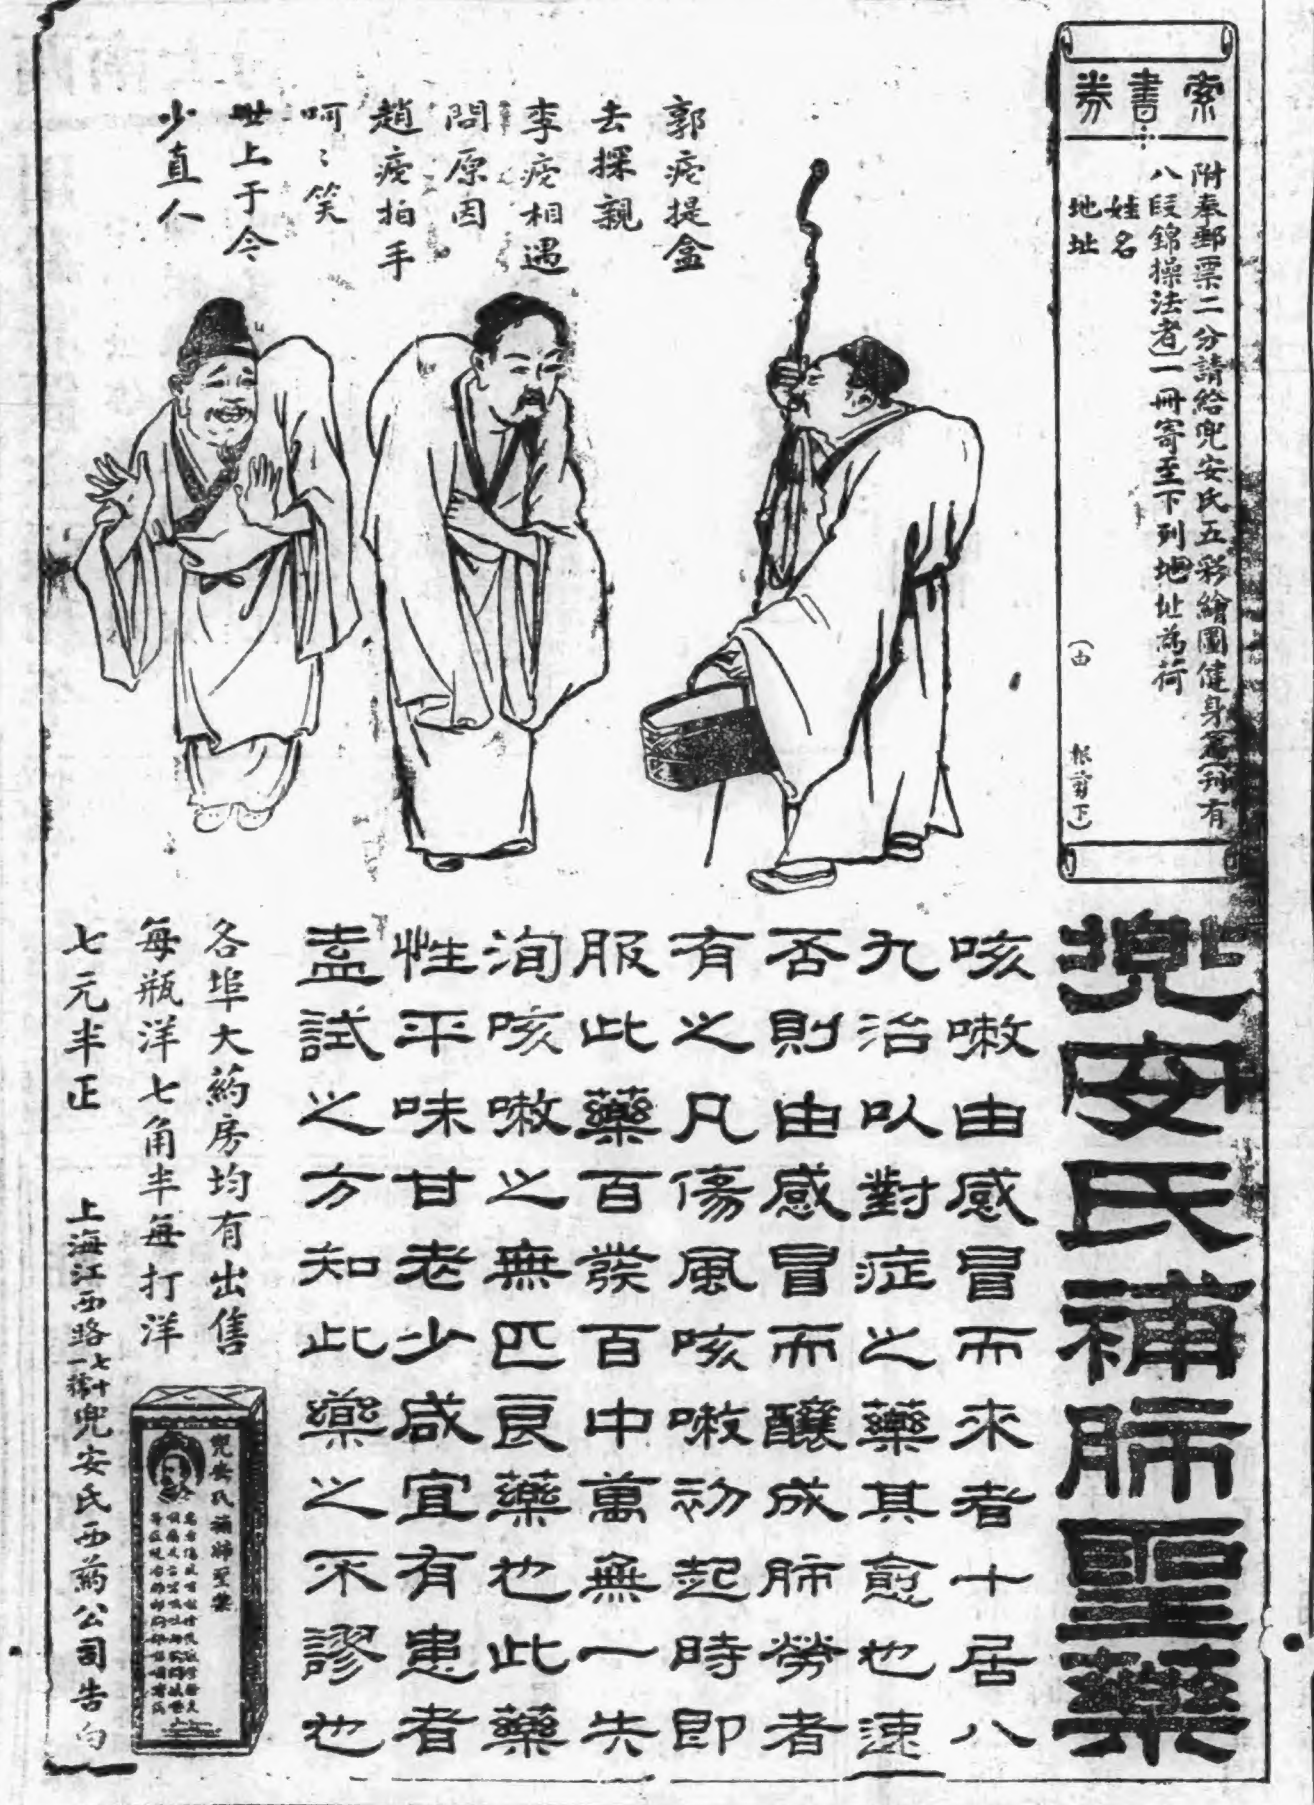 索書券
附奉郵票二分請給兜安氏五彩繪圖健身篇(刊有
八段錦操法者)一冊寄至下列地址為荷
姓名
地址
(由 根剪下)
郭痀提盒
去探親
李痀相遇
問原因
趙痀拍手
呵〻笑
世上于今
少直人
兜安氏補肺聖藥
咳嗽由感冒而來者十居八
九治以對症之藥其愈也速
否則由感冒而釀成肺勞者
有之凡傷風咳嗽初起時即
服此藥百發百中萬無一失
洵咳嗽之無匹良藥也此藥
性平味甘老少咸宜有患者
盍試之方知此藥之不謬也
各埠大葯房均有出售
每瓶洋七角半每打洋
七元半正
上海江西路七十一號兜安氏西葯公司告白
兜安氏補肺聖藥